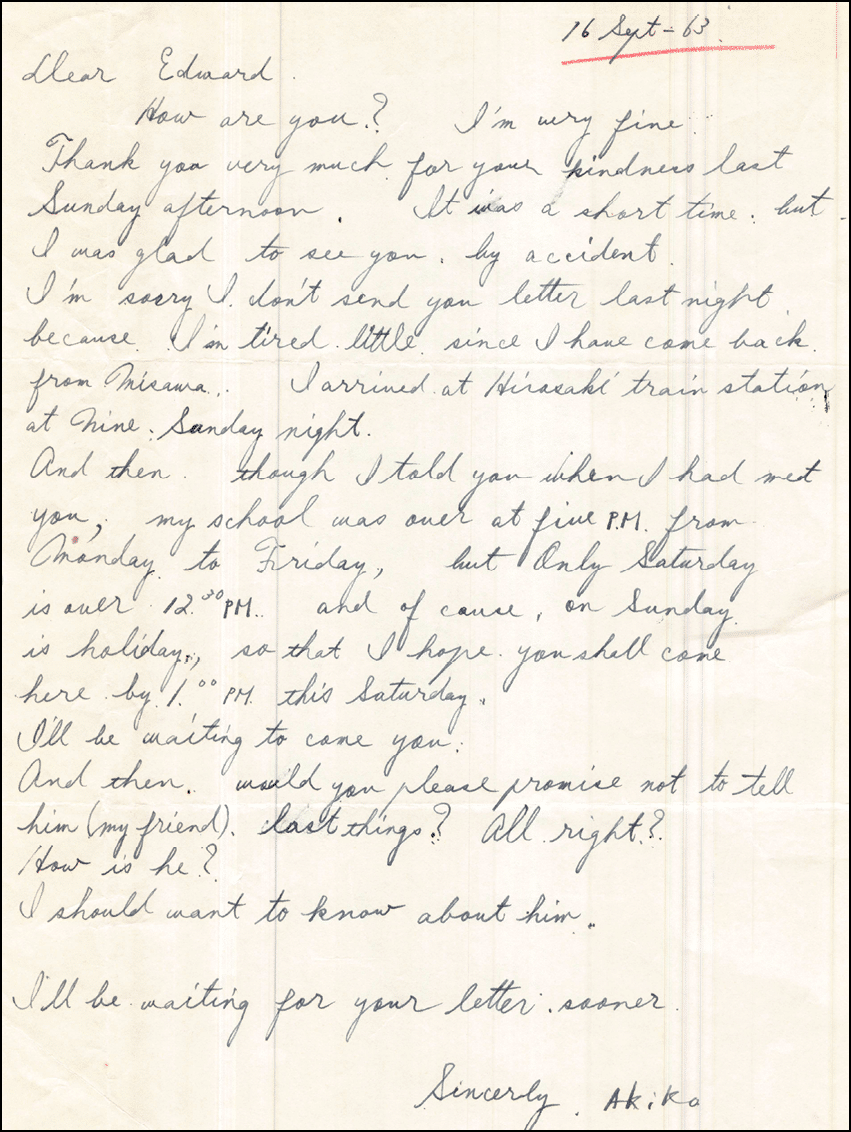 16 Sept - 63.
Dear Edward.
How are you? I'm very fine.
Thank you very much for your kindness last
Sunday afternoon. It was a short time. but
I was glad to see you. by accident.
I'm sorry I don't send you letter last night
because I'm tired little since I have come back
from Misawa. I arrived at Hirosaki train station
at Nine. Sunday night.
And then. though I told you when I had met
you, my school was over at five P.M. from
Monday to Friday, but Only Saturday
is over 12.30 P.M. and of cause, on Sunday
is holiday, so that I hope you shall come
here by 1.00 P.M. this Saturday.
I'll be waiting to come you.
And then. would you please promise not to tell
him (my friend). last things? All right?
How is he?
I should want to know about him.
I'll be waiting for your letter. sooner.
Sincerly. Akiko